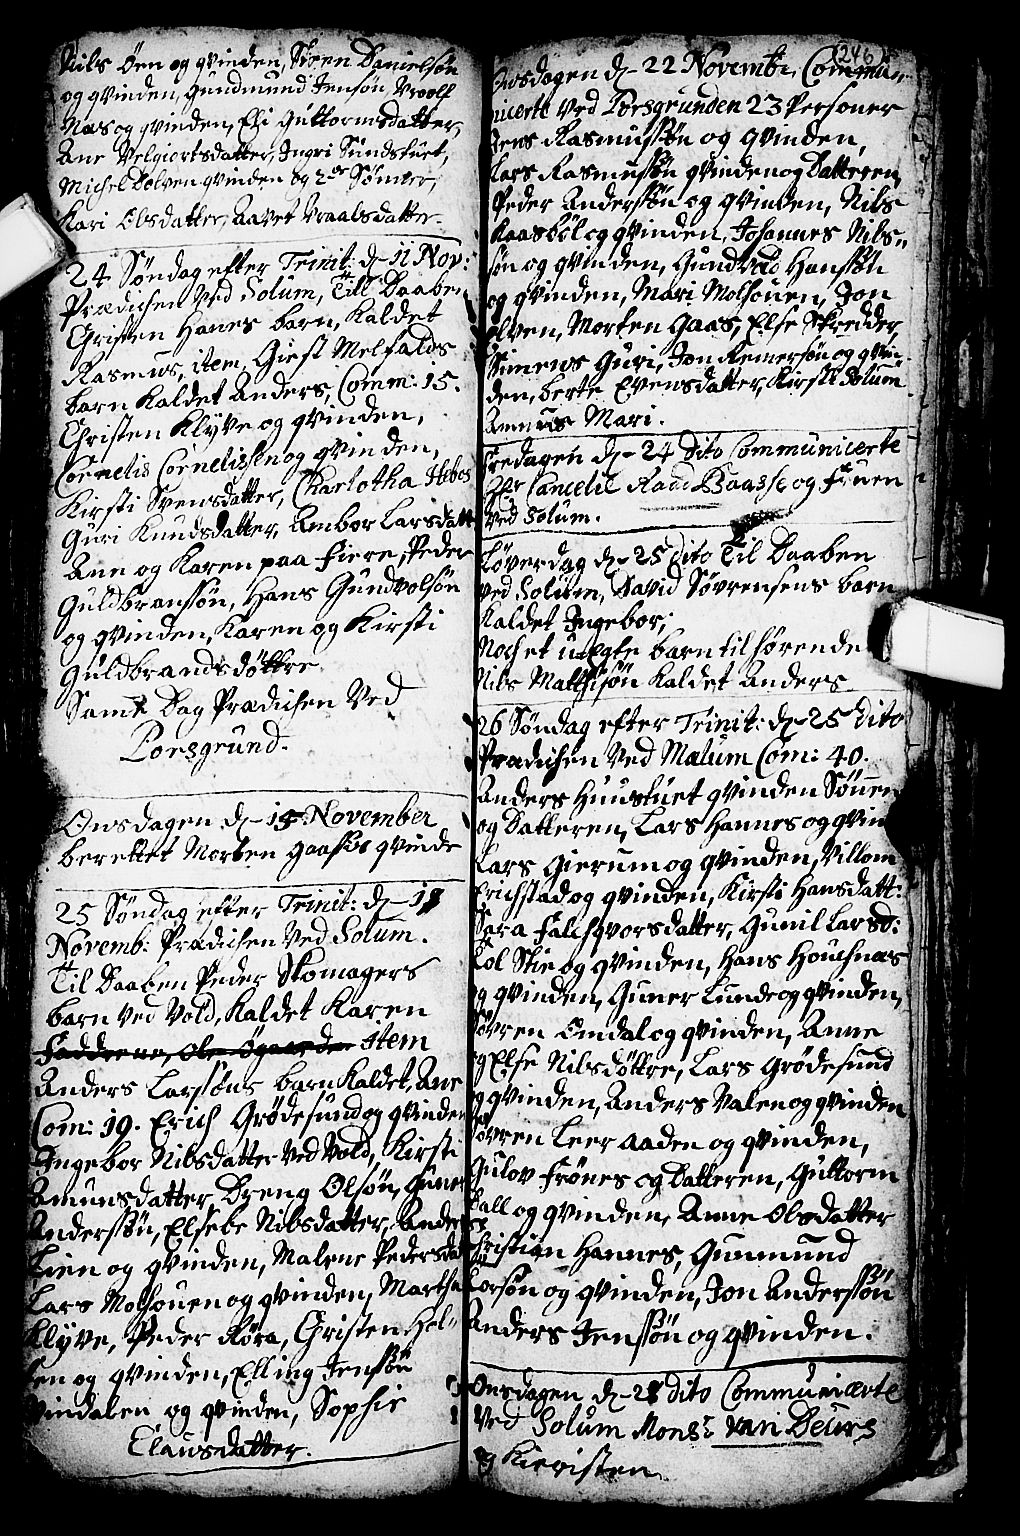 Nils Öen og qvinden, Steen Danielsön
og qvinden, Gundmund Jensön, Wroolf
Næs og qvinden, Eli Guttormsdatter,
Ane Velgiertsdatter, Ingri Sundstuet,
Michel Bolven qvinden og 2de Sönner,
Kari Olsdatter, Aaret Wraalsdatter.
24 Söndag efter Trinit: d- 11 Nov:
Prædichen Ved Solum, Till Daaben
Christen Hanes barn, Kaldet
Rasmus, item, Giest Melfalds
barn Kaldet Anders, Comm: 15.
Christen Klyve og qvinden,
Cornelis Cornelissen og qvinden,
Kirsti Svensdatter, Charlotha
Guri Knudsdatter, Ambor Larsdatt
Ane og Karen paa Fiere, Peder
Guldbransön, Hans Gundvolsön
og qvinden, Karen og Kirsti
Guldbrandsdöttre.
Samt Dag Prædichen Ved
Porsgrund.
Onsdagen d- 15 November
berettet Morten gaasis qvinde
25 Söndag efter Trinit: d- 18
Novemb: Prædichen Ved Solum.
Til Daaben Peder Skomagers
barn Ved Vold, Kaldet Karen
Faddrene, Ole Item
Anders Larssöns barn Kaldet, Ane
Com: 19. Erich Grödesund og qvinden
Ingebor Nilsdatter Ved Vold, Kirsti
Amunsdatter, Dreng Olsön, Guner
Anderssön, Elsebe Nilsdatter, Anders
Lien og qvinden, Malene Pedersdat
Lars Molsouen og qvinden, Martha
Klyve, Peder Röra, Christen Hol-
sen og qvinden, Elling Jenssön
Vindalen og qvinden, Sophie
Clausdatter.
246
Onsdagen d- 22 Novembr, Commu-
nicerte Ved Porsgrunden 23 Personer
Jens Rasmussön og qvinden,
Lars Rasmusön qvinden og Datteren,
Peder Andersön og qvinden, Nils
Kaasböl og qvinden, Johannes Nils-
søn og qvinden, Gundvald Hanssön
og qvinden, Mari Molsouen, Jon
Elven, Morten Gaas, Else Skredder
Simens Guri, Jon Remersön og qvin-
den, berte Evensdatter, Kirsti Solum
Amnus Mari.
Fredagen d- 24 Dito Communicerte
Hr Cancelie Raad Baasse og Fruen
Ved Solum.
Löverdag d- 25 Dito Til Daaben
ved Solum, David Sövrensens barn
Kaldet Ingebor,
Noch et uægte barn tilhørende
Nils Mathisön Kaldet Anders.
26 Söndag efter Trinit: d- 25 Dito
Prædichen Ved Mælum Com: 40.
Anders Huustuet qvinden Sönnen
og Datteren, Lars Hannes og qvin
Lars Gierum og qvinden, Villom
Erichstad og qvinden, Kirsti Hansdatt:
Sara Falchqvorsdatter, Gunil Larsd:
Col Stie og qvinden, Hans Houchnæs
og qvinden, Guner Lunde og qvinden,
Sövren Omdal og qvinden, Anne
og Else Nilsdöttre, Lars Grödesund
og qvinden, Anders Valen og qvinden
Sövren Leer aaden og qvinden,
Gulov Frönes og Datteren, Guttorm
Dall og qvinden, Anne Olsdatter
Christian Hannes, Gunmund
Torsön og qvinden, Jon Anderssön
Anders Jenssön og qvinden.
Onsdagen d- 28 Dito Communicerte
Ved Solum Monsr van Deurs
og Kieristen.